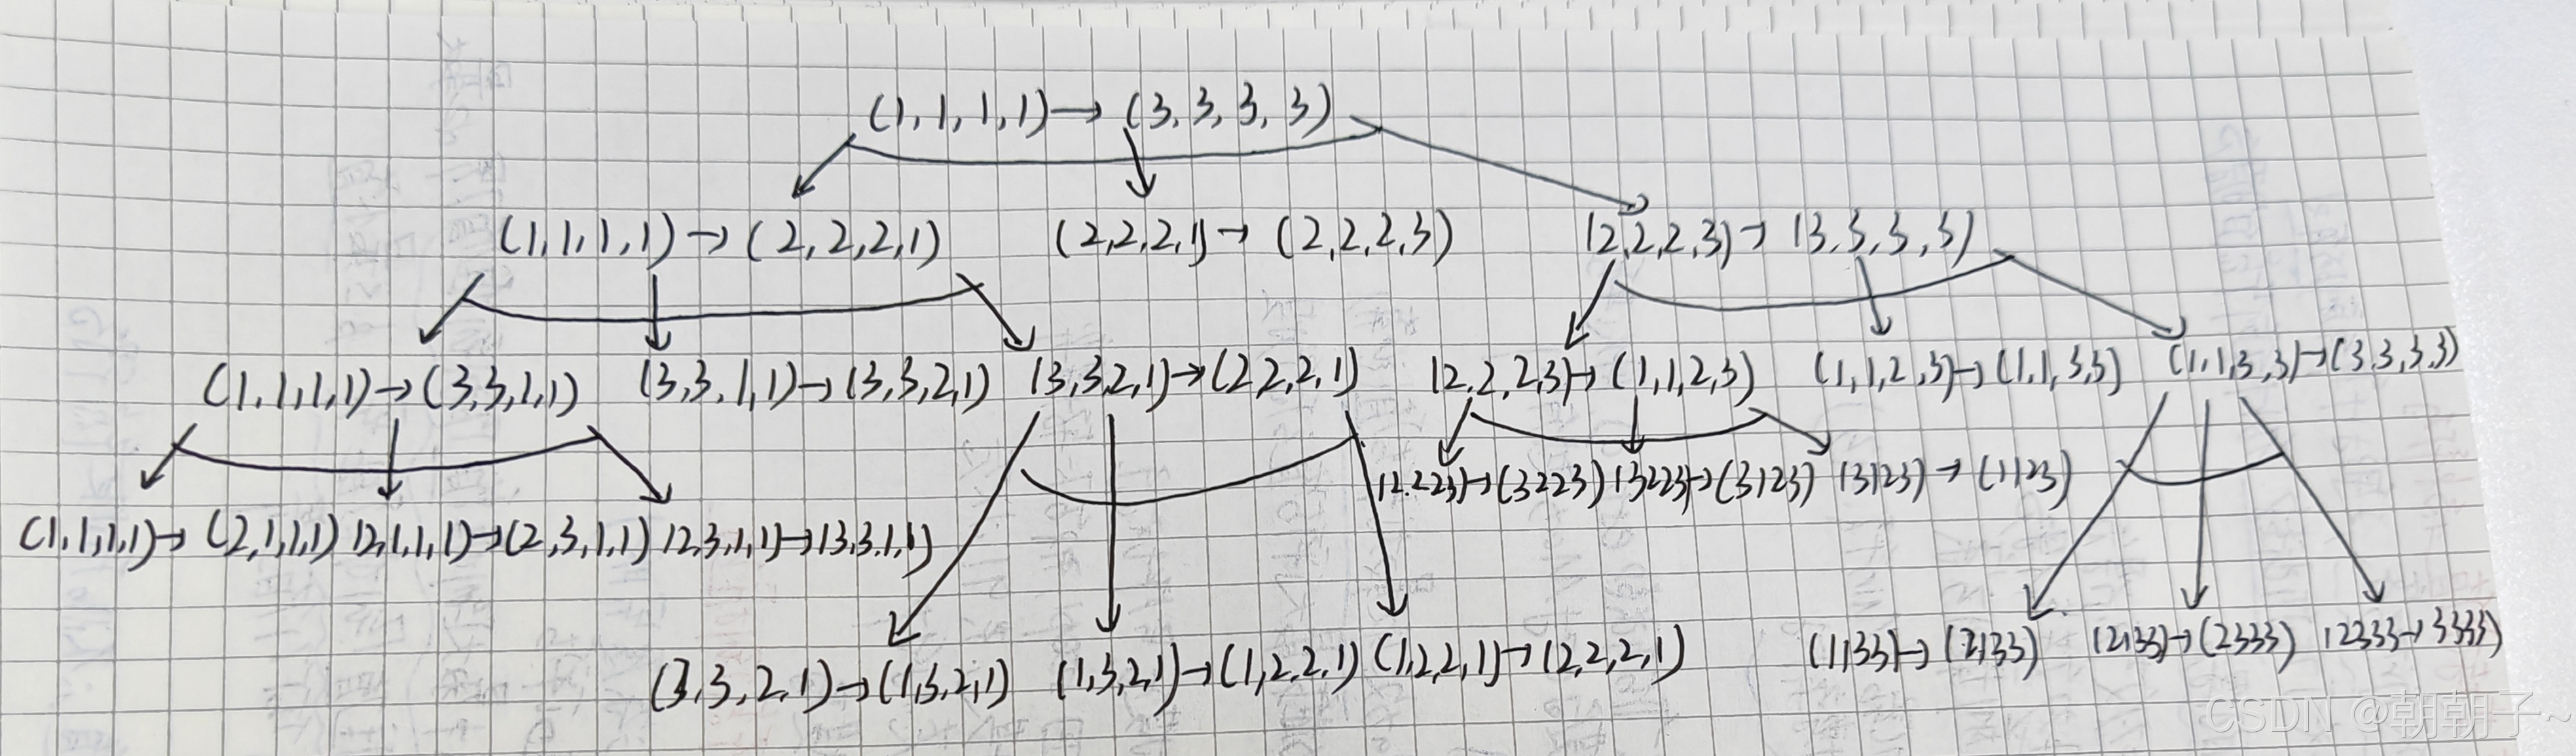 (1,1,1,1)→(3,3,3,3)
(1,1,1,1)→(2,2,2,1) (2,2,2,1)→(2,2,2,3) (2,2,2,3)→(3,3,3,3)
(1,1,1,1)→(3,3,1,1) (3,3,1,1)→(3,3,2,1) (3,3,2,1)→(2,2,2,1) (2,2,2,3)→(1,1,2,3) (1,1,2,3)→(1,1,3,3) (1,1,3,3)→(3,3,3,3)
(2.223)→(3223) (3223)→(3123) (3123)→(1123)
(1,1,1,1)→(2,1,1,1) (2,1,1,1)→(2,3,1,1) (2,3,1,1)→(3,3,1,1)
(3,3,2,1)→(1,3,2,1) (1,3,2,1)→(1,2,2,1) (1,2,2,1)→(2,2,2,1) (1133)→(2133) (2133)→(2333) (2333→3333)
CSDN @朝朝子~